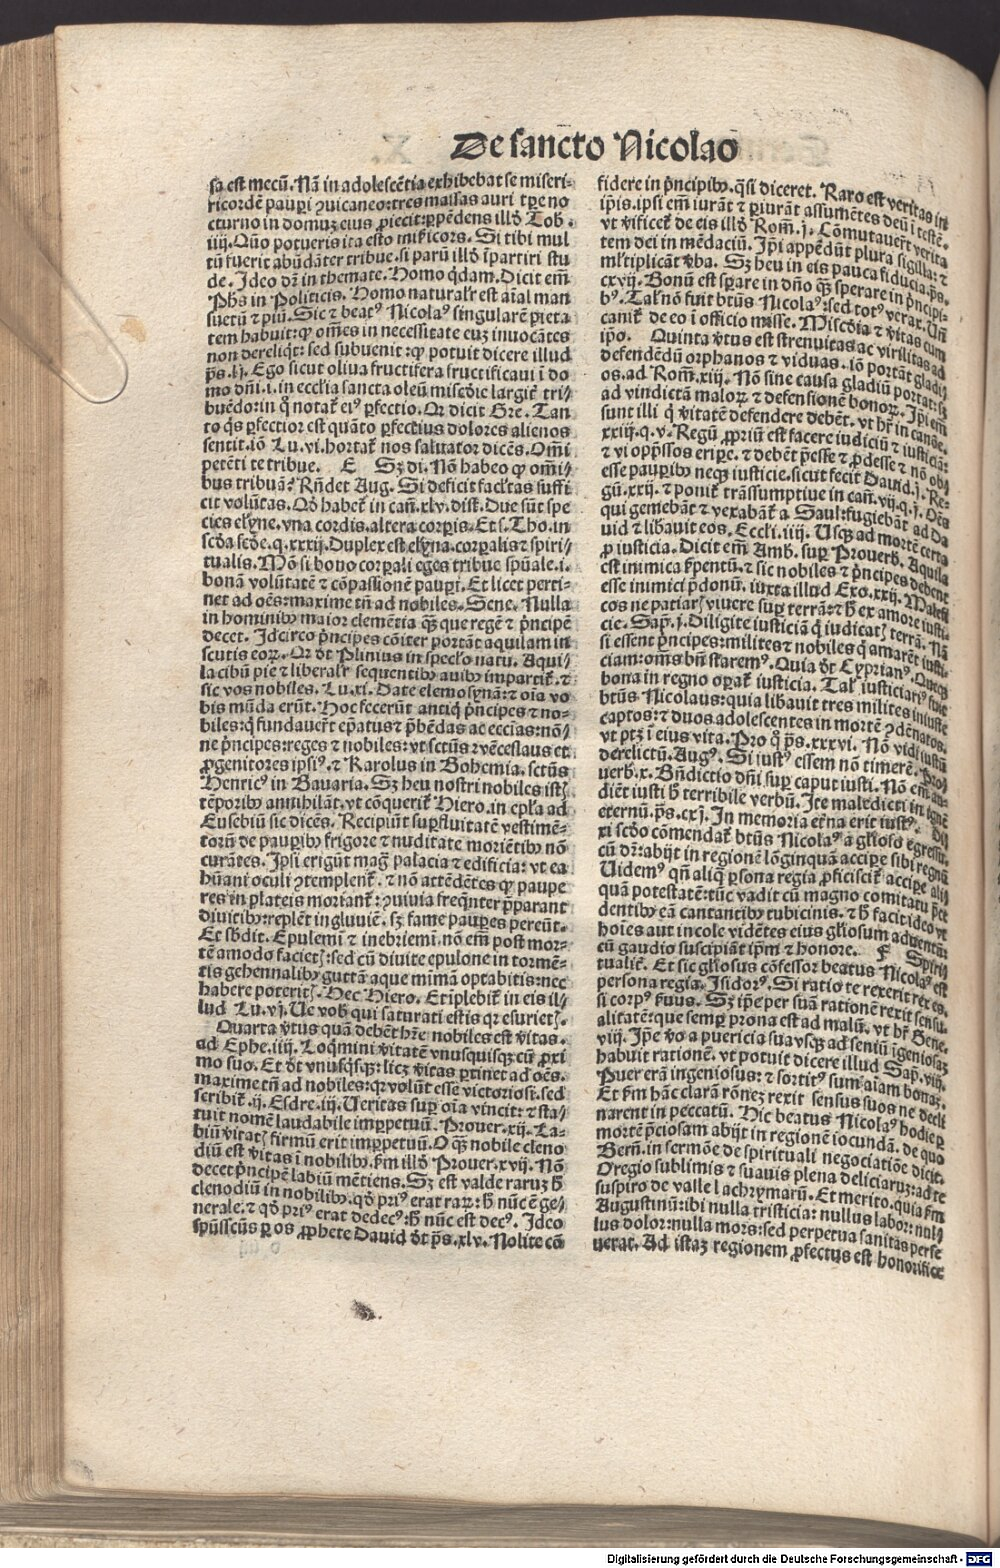 De sancto Nicolao
sa est mecū. Nā in adolescētia exhibebat se miseri-
ricordē pauperi ꝯuicaneo: tres massas auri tꝑe no
cturno in domuz eius ꝓiecit: ꝑpēdens illḋ Tob.
iiij. Quō potueris ita esto mỉẻicors. Si tibi mul
tū fuerit abūdāter tribue. si parū illḋ īpartiri stu
de. Ideo dr̄ in themate. Homo qͥdam. Dicit em̄
Ph̄s in Politicis. Homo naturalr̄ est aīal man
suetū ⁊ piū. Sic ⁊ beatꝰ Nicolaꝰ singularē pieta
tem habuit: ꝙ om̄es in necessitate euz inuocātes
non dereliqͥt: sed subuenit: ꝙ potuit dicere illud
ps̄. lj. Ego sicut oliua fructifera fructificaui ī do
mo dn̄i. i. in ecclīa sancta oleū miscd̄ie largit̄ tri-
buēdo: in qͦ notat̄ eiꝰ ꝑfectio. Qr̄ dicit Gre. Tan
to qͥs ꝑfectior est quāto ꝑfectius dolores alienos
sentit. iō Lu. vi. hortat̄ nos saluator dicēs. Om̄i
petēti te tribue. E Sz di. Nō habeo ꝙ om̄i/
bus tribuā? Rn̄det Aug. Si deficit facl̄tas suffi
cit volūtas. Qd̄ habet̄ in cañ. xlv. dist. Due sūt spe
cies elyne. vna cordis. altera corꝑis. Et s. Tho. in
scḋa scḋe. q. xxxij. Duplex est elyna. corꝑalis ⁊ spiri/
tualis. Nō si bono corꝑali eges tribue spūale. i.
bonā volūtatē ⁊ cōpassionē pauꝑi. Et licet perti-
net ad oēs: maxime tn̄ ad nobiles. Sene. Nulla
in hominibꝰ maior clemētia qͣꝫ que regē ⁊ pͥncipē
decet. Idcirco pͥncipes cōiter portāt aquilam in
scutis eoꝝ. Qr̄ dt̄ Plinius in specl̄o natu. Aqui/
la cibū pie ⁊ liberalr̄ sequentibꝰ auibꝰ impartit̄. ⁊
sic vos nobiles. Lu. xi. Date elemosynā: ⁊ oīa vo
bis mūda erūt. Hoc fecerūt antiqͥ pͥncipes ⁊ no-
biles: qͥ fundauer̄t ep̄atus ⁊ pͥbēdas ac ecc̄ias: nō/
ne pͥncipes: reges ⁊ nobiles: vt sctūs vēceslaus et
ꝓgenitores ipsiꝰ. ⁊ Karolus in Bohemia. sctūs
Henricꝰ in Bauaria. Sz heu nostri nobiles istꝭ
tēporibꝰ annihilāt. vt cōquerit̄ Hiero. in epl̄a ad
Eusebiū sic dicēs. Recipiūt suꝑfluitatē vestimē-
torū de pauꝑibꝰ frigore ⁊ nuditate moriētibꝰ nō
curātes. Ipsi erigūt mag̃ palacia ⁊ edificia: vt ea
hūani oculi ꝯtemplent̄. ⁊ nō attēdētes ꝙ paupe
res in plateis moriant̄: ꝯuiuia freqͥnter pͥparant
diuitibꝰ: replēt ingluuiē. sz fame pauꝑes pereūt.
Et sb̄dit. Epulemī ⁊ inebriemī. nō em̄ post mor-
tē amodo facietꝭ: sed cū diuite epulone in tormē-
tis gehennalibꝰ guttā aque mīmā optabitis: nec
habere poteritꝭ. Hec Hiero. Et īplebit̄ in eis il/
lud Lu. vj. Ue vob̄ qui saturati estis qr̄ esurietꝭ.
Quarta vͥtus quā debēt hr̄e nobiles est vͥitas.
ad Ephe. iiij. Loqͥmini vͥitatē vnusquisqꝫ cū ꝓxi
mo suo. Et dt̄ vnusqͥsqꝫ: licꝫ vͥitas ꝑtinet ad oēs.
maxime tn̄ ad nobiles: qr̄ volūt esse victoriosi. sed
scribit̄. ij. Esdre. iij. Ueritas suꝑ oīa vincit: ⁊ sta/
tuit nomē laudabile imꝑpetuū. Prouer. xij. La-
biū vͥitatꝭ firmū erit imꝑpetuū. O qͣꝫ nobile cleno
diū est vͥitas ī nobilibꝰ. fm̄ illḋ Prouer. xvij. Nō
decet pͥncipē labiū mētiens. Sz est valde raruz h̄
clenodiū in nobilibꝰ. qd̄ pͥꝰ erat raꝝ: h̄ nūc ē ge/
nerale. ⁊ qd̄ pͥꝰ erat dedecꝰ: h̄ nūc est decꝰ. Ideo
spūssctūs ꝑ os ꝓphete Dauid dt̄ ps̄. xlv. Nolite cō
fidere in pͥncipibꝰ. qͣsi diceret. Raro est veritas in
ip̄is. ipsi em̄ iurāt ⁊ ꝑiurāt assumētes deū ī testē.
vt vͥificet̄ de eis illḋ Rom̄. j. Cōmutauer̄t verita
tem dei in mēdaciū. Ip̄i appēdūt plura sigilla: ⁊
ml̄tiplicāt vͥba. Sz heu in eis pauca fiducia. ps̄.
cxvij. Bonū est sꝑare in dn̄o qͣꝫ sperare in pͥncipi-
bꝰ. Tal̄ nō fuit btūs Nicolaꝰ: sed totꝰ verax. Un̄
canit̄ de eo ī officio misse. Miscd̄ia ⁊ vͥitas cum
ip̄o. Quinta vͥtus est strenuitas ac virilitas ad
defendēdū orphanos ⁊ viduas. iō portāt gladi/
os. ad Rom̄. xiij. Nō sine causa gladiū portat: sꝫ
ad vindictā maloꝝ ⁊ defensionē bonoꝝ. Ip̄i em̄
sunt illi qͥ vͥitatē defendere debēt. vt hr̄ in canōe.
xxiij. q. v. Regū ꝓpriū est facere iudiciū ⁊ iusticiā:
⁊ vi opp̄ssos eriꝑe. ⁊ debēt pͥesse ⁊ ꝓdesse ⁊ nō ob/
esse pauꝑibꝰ neqꝫ iusticie. sicut fecit Dauid. j. Re-
gū. xxij. ⁊ ponit̄ trāssumptiue in cañ. vij. q. j. Oēs
qui gemebāt ⁊ vexabāt̄ a Saul: fugiebāt ad Da
uid ⁊ libauit eos. Eccli. iiij. Usqꝫ ad mortē certa
ꝓ iusticia. Dicit em̄ Amb. suꝑ Prouerb. Aquila
est inimica sͥpentū. ⁊ sic nobiles ⁊ pͥncipes debent
esse inimici pͥdonū. iuxta illud Exo. xxij. Malefi
cos ne patiarꝭ viuere suꝑ terrā: ⁊ h̄ ex amore iusti-
cie. Sap̄. j. Diligite iusticiā qͥ iudicatꝭ terrā. Nā
si essent pͥncipes: milites ⁊ nobiles qͥ amarēt iusti-
ciam: om̄s bn̄ staremꝰ. Quia dt̄ Cyprianꝰ. Oueqꝫ
bona in regno oꝑat̄ iusticia. Tal̄ iusticiariꝰ fuit
btūs Nicolaus: quia libauit tres milites iniuste
captos: ⁊ duos adolescentes in mortē ꝯdēnatos,
vt ptꝫ ī eius vita. Pro qͦ ps̄. xxxvi. Nō vidi iustū
derelictū. Augꝰ. Si iustꝰ essem nō timerē. Pro/
uerb. x. Bn̄dictio dn̄i suꝑ caput iusti. Nō em̄ au-
diēt iusti h̄ terribile verbū. Ite maledicti in ignē
eternū. ps̄. cxj. In memoria et̄na erit iustꝰ. Dij
xi scḋo cōmendat̄ btūs Nicolaꝰ a gl̄ioso egressu.
cū dr̄: abijt in regionē lōginquā acciꝑe sibi regnū
Uidemꝰ qn̄ aliqͣ ꝑsona regia ꝓficiscit̄ acciꝑe ali/
quā potestatē: tūc vadit cū magno comitatu pͥce
dentibꝰ eā cantantibꝰ tubicinis. ⁊ h̄ facit ideo vt
hoīes aut incole vidētes eius gl̄iosum aduentū:
cū gaudio suscipiāt ip̄m ⁊ honore. F Spiri/
tualit̄. Et sic gl̄iosus cōfessor beatus Nicolaꝰ est
persona regia. Isidorꝰ. Si ratio te rexerit rex es.
si corpꝰ sͥuus. Sz ip̄e per suā rationē rexit sensu
alitatē: que semꝑ prona est ad malū. vt hr̄ Gene.
viij. Ip̄e vͦo a puericia sua vsqꝫ ad seniū īgeniosaꝫ
habuit rationē. vt potuit dicere illud Sap̄. viij.
Puer erā ingeniosus: ⁊ sortitꝰ sum aīam bonaꝫ.
Et fm̄ hāc clarā rōneꝫ rexit sensus suos ne decli
narent in peccatū. Hic beatus Nicolaꝰ hodie ꝑ
mortē pͥciosam abijt in regionē iocundā. de qua
Berñ. in sermōe de spirituali negociatiōe dicit.
O regio sublimis ⁊ suauis plena deliciaruꝫ: ad te
suspiro de valle lachrymarū. Et merito. quia fm̄
Augustinū: ibi nulla tristicia: nullus labor: nul/
lus dolor: nulla mors: sed perpetua sanitas perse
uerat. Ad istaꝫ regionem ꝓfectus est honorifice
Digitalisierung gefördert durch die Deutsche Forschungsgemeinschaft - DFG